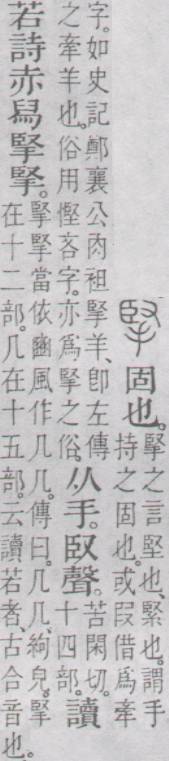 掔 固也。
掔之言堅也、緊也。謂手
持之固也。或叚借爲牽
字。如史記鄭襄公肉袒掔羊、卽左傳
之牽羊也。俗用慳吝字。亦爲掔之俗。
从手。臤聲。
苦閑切。
十四部。
讀
若詩赤舄掔掔。
掔掔當依豳風作几几。傳曰。几几、絇皃。掔
在十二部。几在十五部。云讀若者、古合音也。